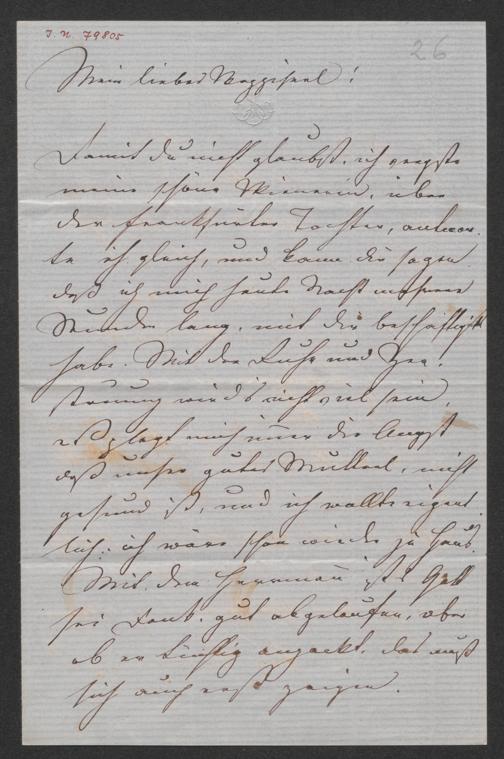 I. N. 79805
26
Mein liebes Nagziserl!
Damit du nicht glaubst, ich vergeße
meine schöne Wienerin, über
der Frankfurter Tochter, antwor-
te ich gleich, und kann dir sagen
daß ich mich heute Nacht mehrere
Stunden lang, mit dir beschäftigt
habe. Mit der Ruhe und Zer-
streuung wird's nicht viel sein,
es plagt mich im̄er die Angst
daß unser gutes Mutterl, nicht
gesund ist, und ich wollte eigent-
lich, ich wäre schon wieder zu Haus.
Mit dem Herrman̄ ist's Gott
sei Dank, gut abgelaufen, aber
ob er künftig anpackt, das muß
sich auch erst zeigen.